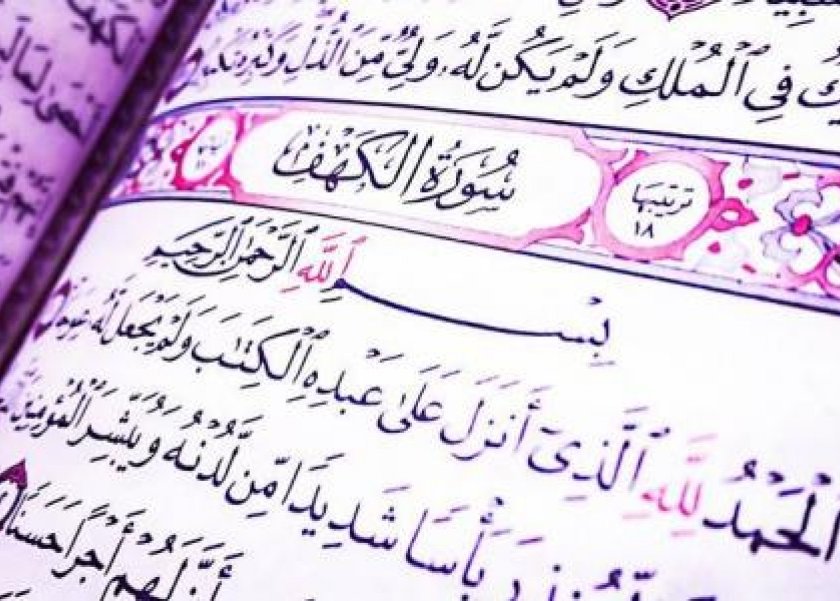 فِي ٱلْمُلْكِ وَلَمْ يَكُن لَّهُۥ وَلِىٌّ مِّنَ ٱلذُّلِّ وَكَبِّرْهُ
سُورَةُ الكَهْفِ
ترتيبها
١٨
بِسْمِ ٱللَّهِ ٱلرَّحْمَٰنِ ٱلرَّحِيمِ
ٱلْحَمْدُ لِلَّهِ ٱلَّذِىٓ أَنزَلَ عَلَىٰ عَبْدِهِ ٱلْكِتَٰبَ وَلَمْ يَجْعَل لَّهُۥ عِوَجَا
بَأْسًا شَدِيدًا مِّن لَّدُنْهُ وَيُبَشِّرَ ٱلْمُؤْمِنِينَ
أَنَّ لَهُمْ أَجْرًا حَسَنًا